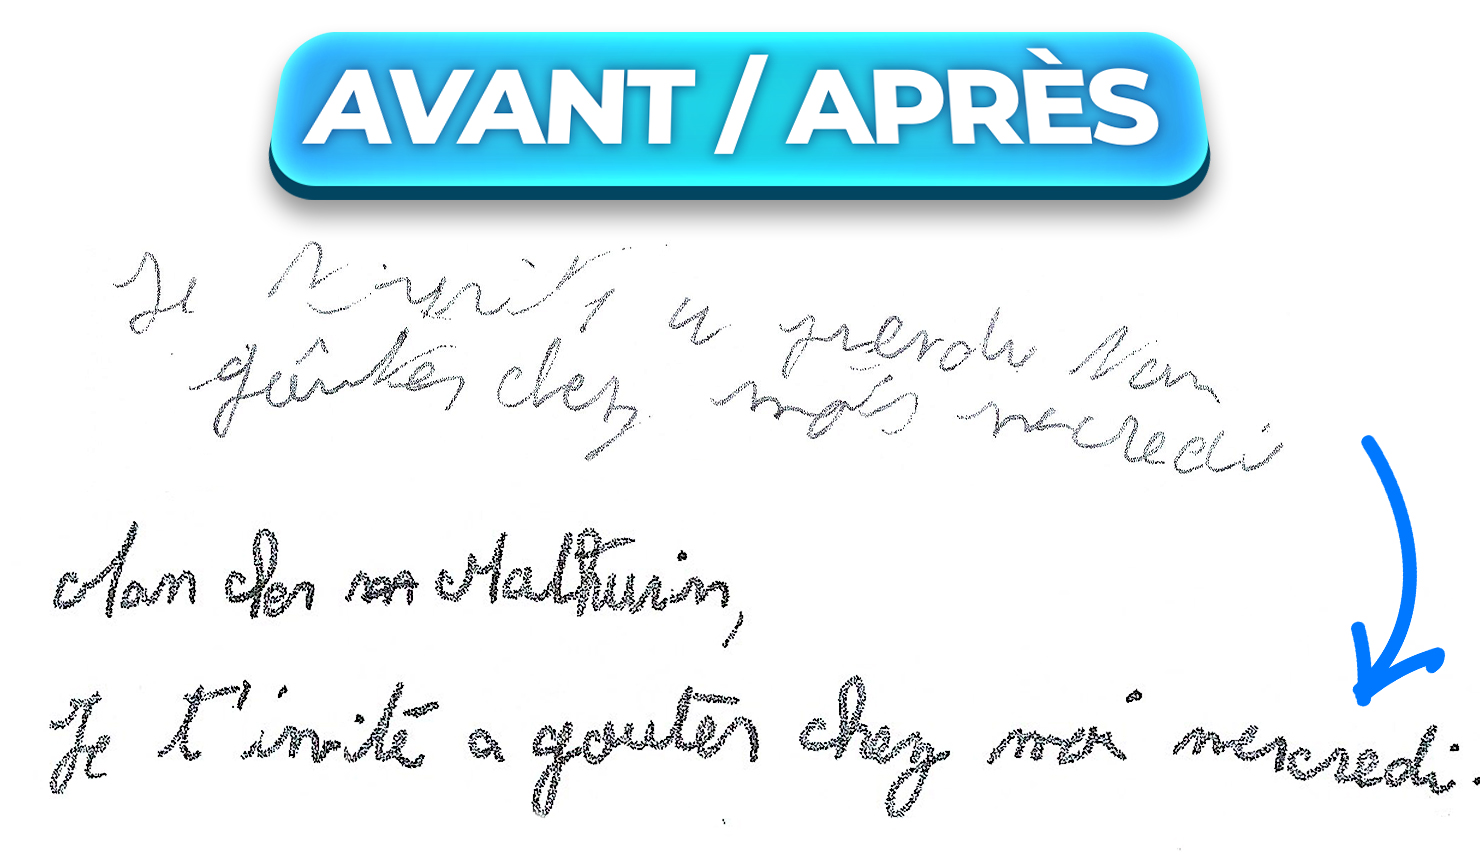 AVANT / APRÈS
Je t'invite a prendre
goûter chez mois mecredi
Mon cher Mathurin,
Je t'invité a gouter chez moi mercredi.